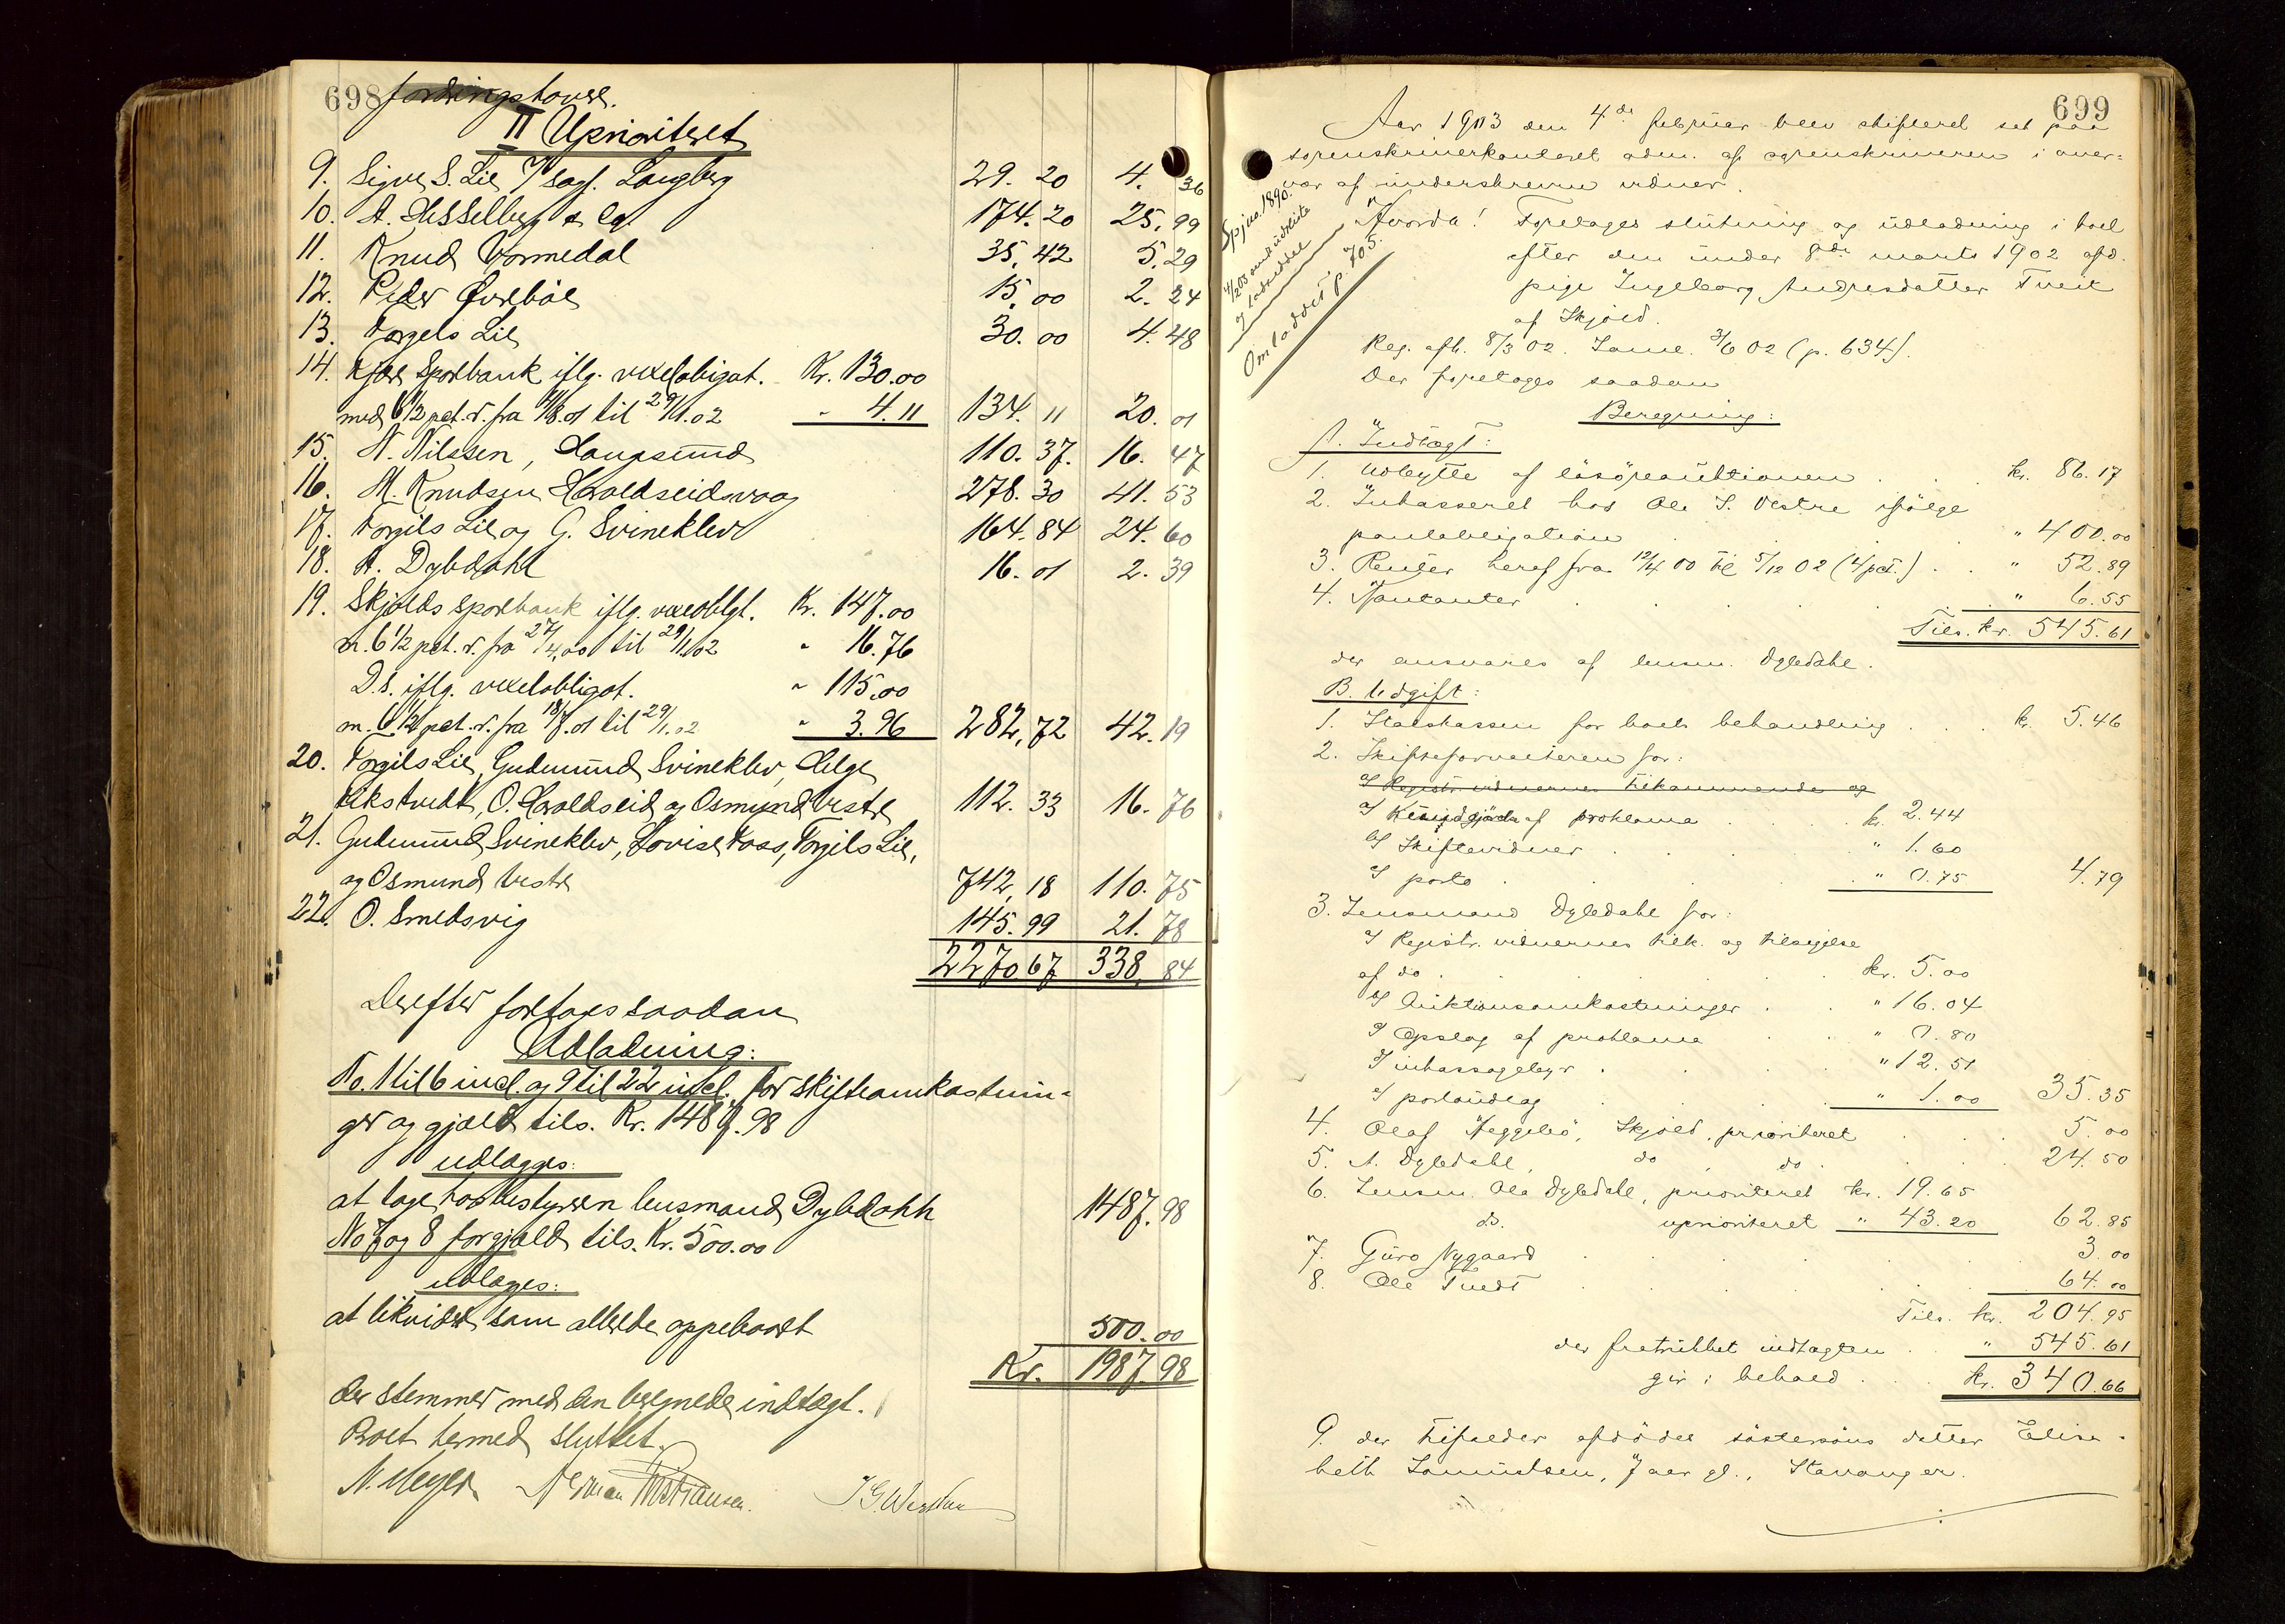 698 fordringshaver.
II Uprioriteret
9. Sigve S. Lie v/ sagf. Langberg 29.20 4.36
10. A. Hesselberg & Co. 174.20 25.99
11. Knud Vormedal 35.42 5.29
12. Peder Øvrebøe 15.00 2.24
13. Torgels Lie 30.00 4.48
14. Kjøre Sparebank iflg. vexelobligat. Kr. 130.00
med 6 1/2 pct. r. fra 4/8.01 til 29/1.02 " 4.11 134.11 20.01
15. N. Nilssen, Haugesund 110.37. 16.47
16. M. Knudsen Haraldseidsvaag 278.30 41.53
17. Torgils Lie og G. Svineklev 164.84 24.60
18. A. Dybdahl 16.01 2.39
19. Skjolds Sparebank iflg. vexelobligt. Kr. 147.00
m. 6 1/2 pct. r. fra 27/4.00 til 29/1.02 " 16.76
D.s. iflg. vexelobligat. " 115.00
m. 6 1/2 pct. r. fra 18/7.01 til 29/1.02 " 3.96 282,72 42.19
20. Torgils Lie, Gudmund Svineklev, Helge
Økstvedt, O. Haraldseid og Osmund Vestre 112.33 16.76
21. Gudmund Svineklev, Lovise Voss, Torgils Lie,
og Osmund Vestre 742,18 110.75
22. O. Smedsvig 145.99 21.78
2270.67 338,84
Derefter foretages saadan
Udladning:
No. 1 til 6 incl. og 9 til 22 incl. for skifteomkostnin-
ger og gjæld tils. Kr. 1487.98
udlægges:
at tage hos bestyreren lensmand Dybdahl 1487.98
No 7 og 8 for gjæld tils. Kr. 500.00
udlægges:
at likvidere som allerede oppebaaret 500.00
Kr. 1987.98
der stemmer med den beregnede indtægt.
Boet hermed sluttet.
N. Meyer Herman Kristiansen. J G Westbøe
699
Aar 1903 den 4de februar blev skifteret sat paa
sorenskriverkontoret adm. af sorenskriveren i over-
vær af underskrevne vidner.
Hvorda! Foretages slutning og udladning i boet
efter den under 8de marts 1902 afd.
pige Ingeborg Andresdatter Tveit
af Skjold.
Reg. afh. 8/3 02. Saml. 3/6 02 (p. 634).
Der foretages saadan
Beregning:
A. Indtægt:
1. Udbytte af løsøreauktionen . . kr. 86.17
2. Inkasseret hos Ole S. Vestre ifølge
pantobligation " 400.00
3. Renter heraf fra 12/4 00 til 5/12 02 (4 pct.) . . " 52.89
4. Kontanter . . . . " 6.55
Tils. kr. 545.61
der ansvares af lensm. Dybdahl.
B. Udgift:
1. Statskassen for boets behandling . . . kr. 5.46
2. Skifteforvalteren for:
a/ Registr. vidnernes tilkommende og
a/ Kundgjør. af proklama . . . kr. 2.44
b/ Skiftevidner . . . " 1.60
c/ porto . . . " 0.75 4.79
3. Lensmand Dybdahl for:
a/ Registr. vidnernes tilk. og tilsigelse
af do . . . . kr. 5.00
b/ Auktionsomkostninger . . " 16.04
c/ Opslag af proklama . . " 0.80
d/ inkassogebyr . . . " 12.51
e/ portoudlæg . . . " 1.00 35.35
4. Olaf Heggebø, Skjold, prioriteret . . . 5.00
5. A. Dybdahl, do , do . . . 24.50
6. Lensm. Ole Dybdahl, prioriteret kr. 19.65
do. uprioriteret " 43.20 62.85
7. Guro Nygaard . . . . 3.00
8. Ole Tvedt . . . . 64.00
Tils. kr. 204.95
der fratrukket indtægten . . " 545.61
gir i behold . . . kr. 340.66
9. der tilfalder afdødes søstersøns datter Elisa-
beth Samuelsen, 7 aar gl., Stavanger.
Spjno. 1890.
4/2 03 sendt udskrift
Omladdet p. 705.